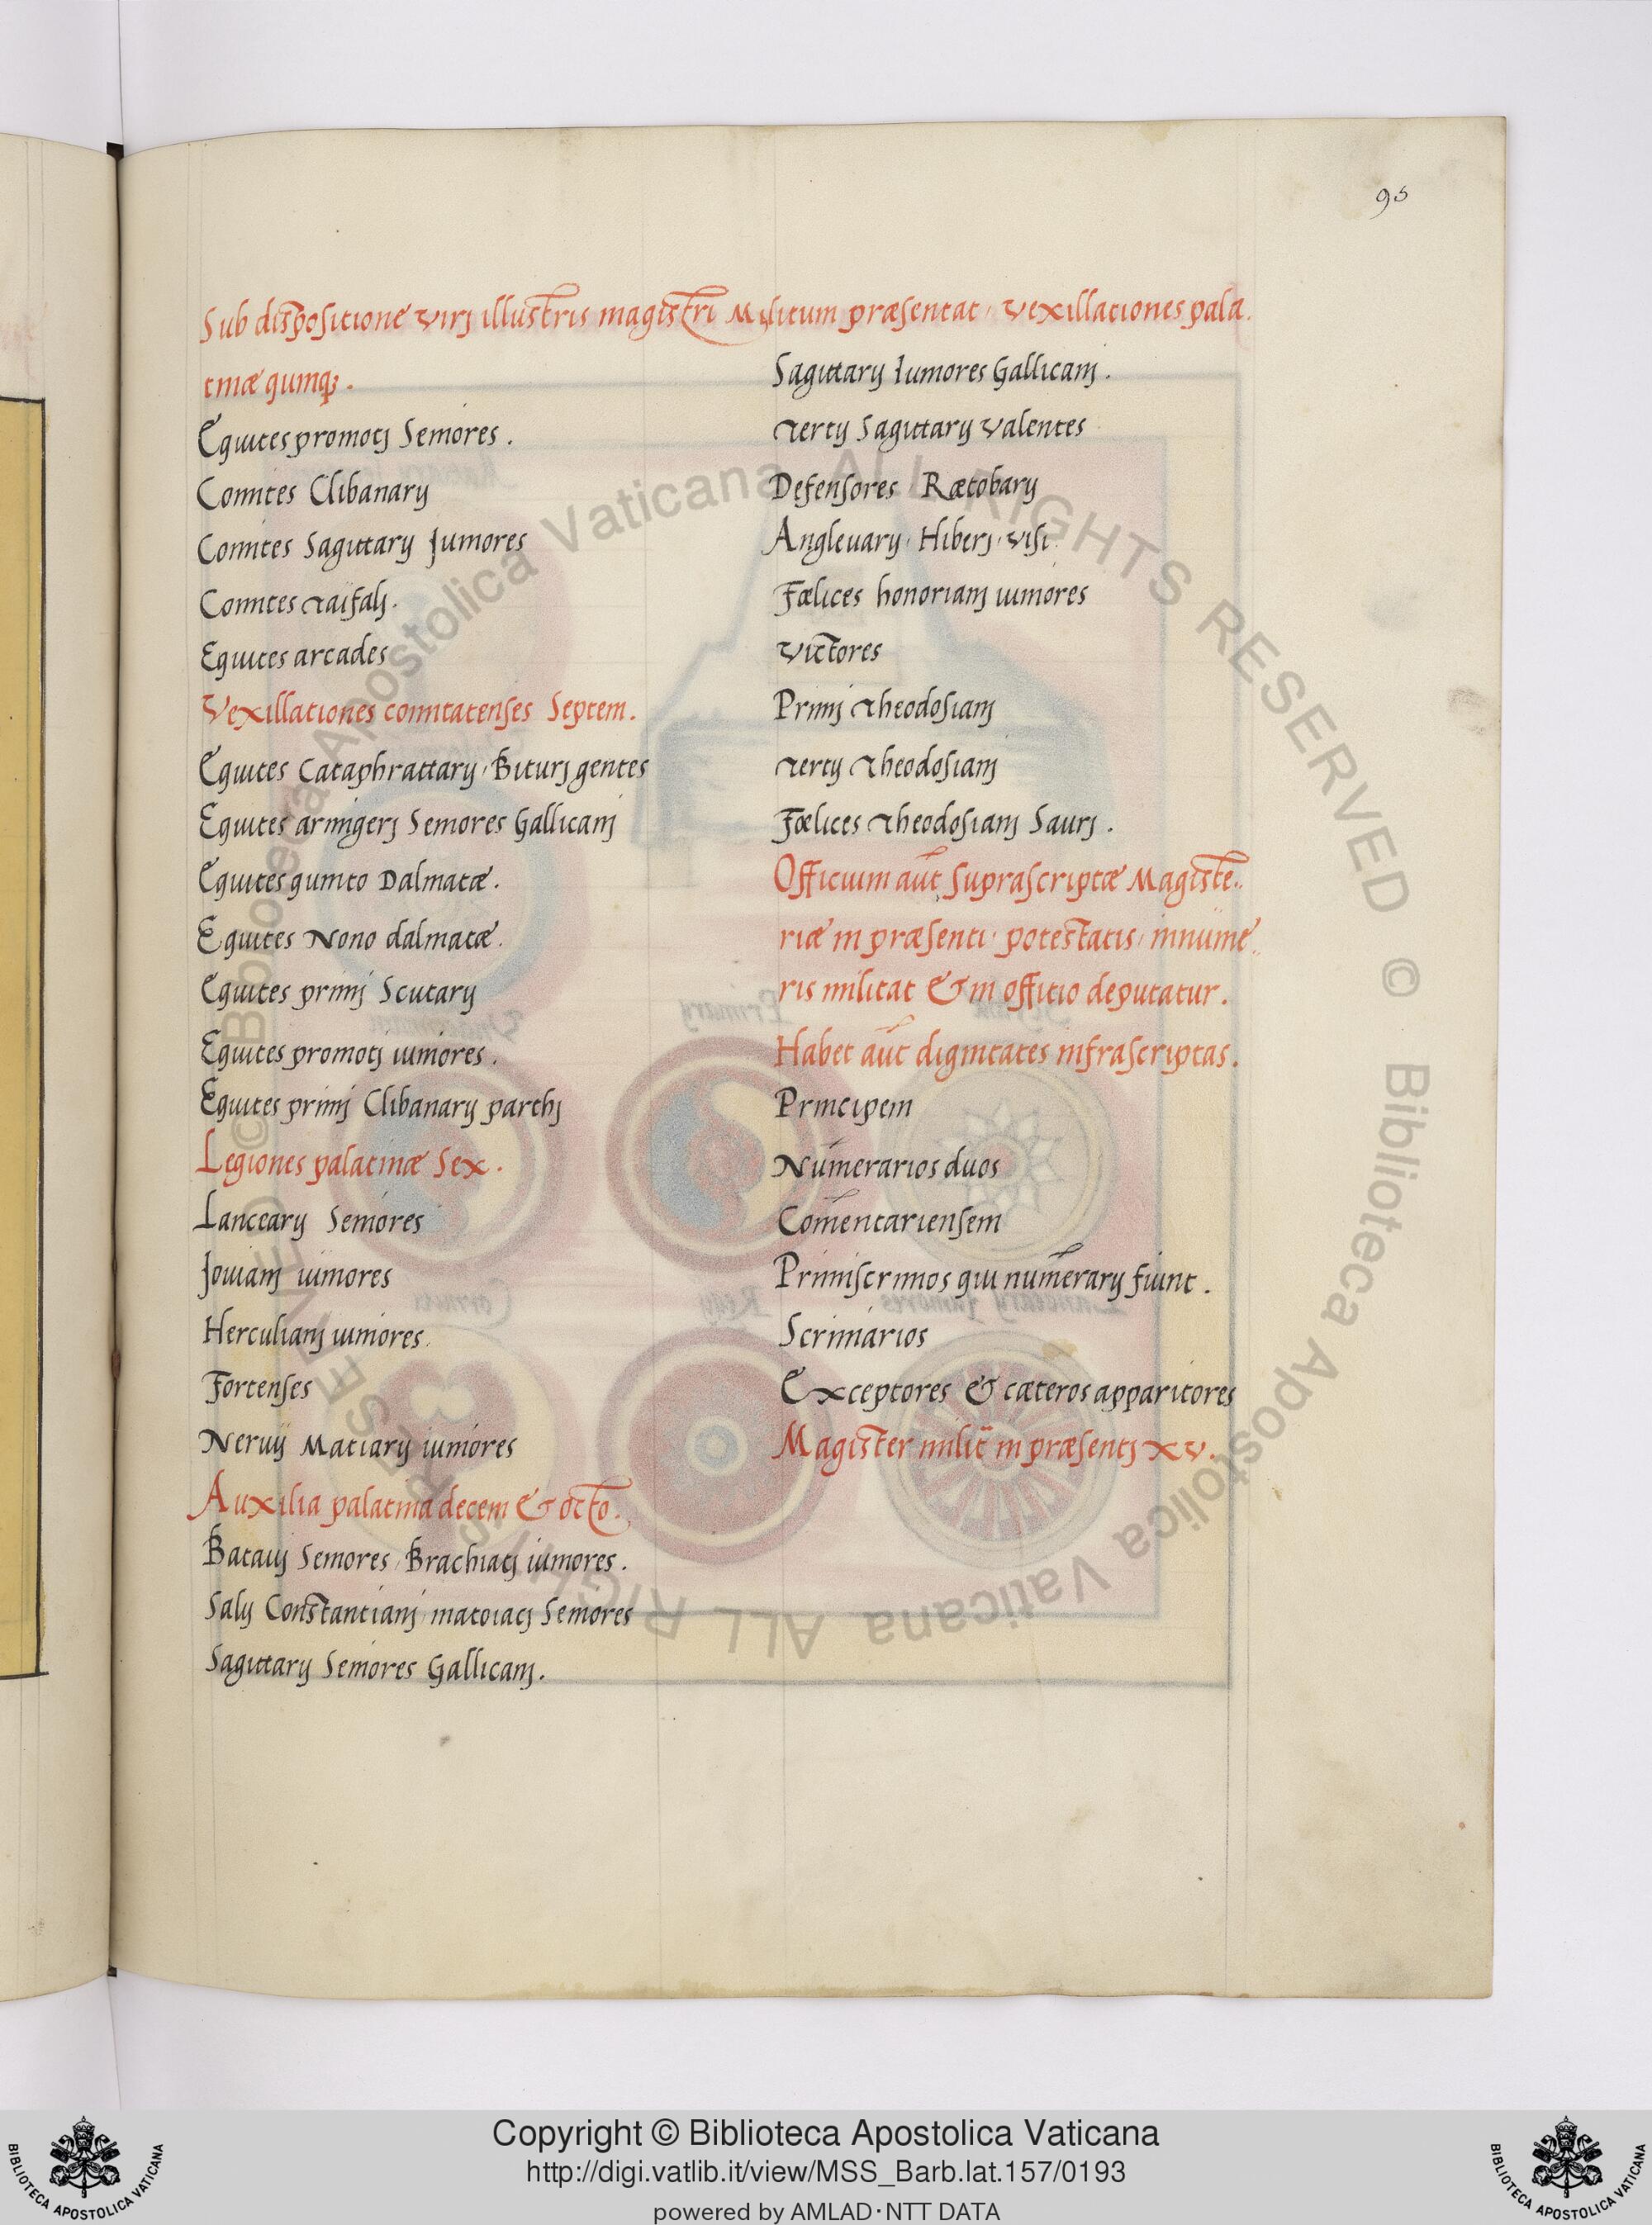 95
Sub dispositione virj illustris magistri Militum præsentat, vexillationes pala.
tinæ quinqꝫ.
Equites promotj Seniores.
Comites Clibanarij
Comites Sagittarij Juniores
Comites taifalj.
Equites arcades
Vexillationes comitatenses Septem.
Equites Cataphrattarij, Biturigentes
Equites armigerj Seniores Gallicanj
Equites quinto Dalmatæ.
Equites Nono dalmatæ.
Equites primj Scutarij
Equites promotj iuniores.
Equites primj Clibanarij parthj
Legiones palatinæ Sex.
Lancearij Seniores
Jovianj iuniores
Herculianj iuniores.
Fortenses
Neruij Matiarij iuniores
Auxilia palatina decem & octo.
Batauj Seniores, Brachiatj iuniores.
Salij Constantianj, matoiacj Seniores
Sagittarij Seniores Gallicanj.
Sagittarij Iuniores Gallicanj.
Tertij Sagittarij valentes
Defensores, Rætobarij
Angleuarij, Hiberj, visi.
Fælices honorianj iuniores
Victores
Primj theodosianj
Tertij theodosianj
Fœlices theodosianj Saurj.
Officium aūt suprascriptæ Magiste..
riæ in præsenti, potestatis, innume..
ris militat & in offitio deputatur.
Habet aūt dignitates infrascriptas.
Principem
Numerarios duos
Comentariensem
Primiscrinios qui numerarij fiunt.
Scriniarios
Exceptores & cæteros apparitores
Magister milit̄ in præsentj XV.
© Biblioteca Apostolica Vaticana ALL RIGHTS RESERVED © Biblioteca Apostolica Vaticana ALL RIGHTS RESERVED
Copyright © Biblioteca Apostolica Vaticana
http://digi.vatlib.it/view/MSS_Barb.lat.157/0193
powered by AMLAD·NTT DATA
BIBLIOTECA APOSTOLICA VATICANA
BIBLIOTECA APOSTOLICA VATICANA